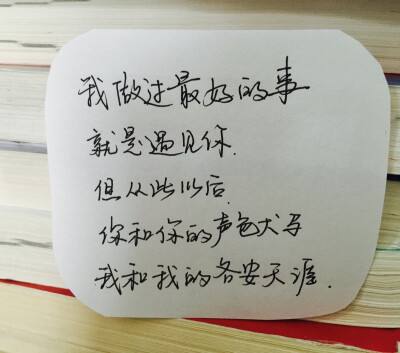 我做过最好的事
就是遇见你.
但从此以后.
你和你的声色犬马
我和我的各安天涯.